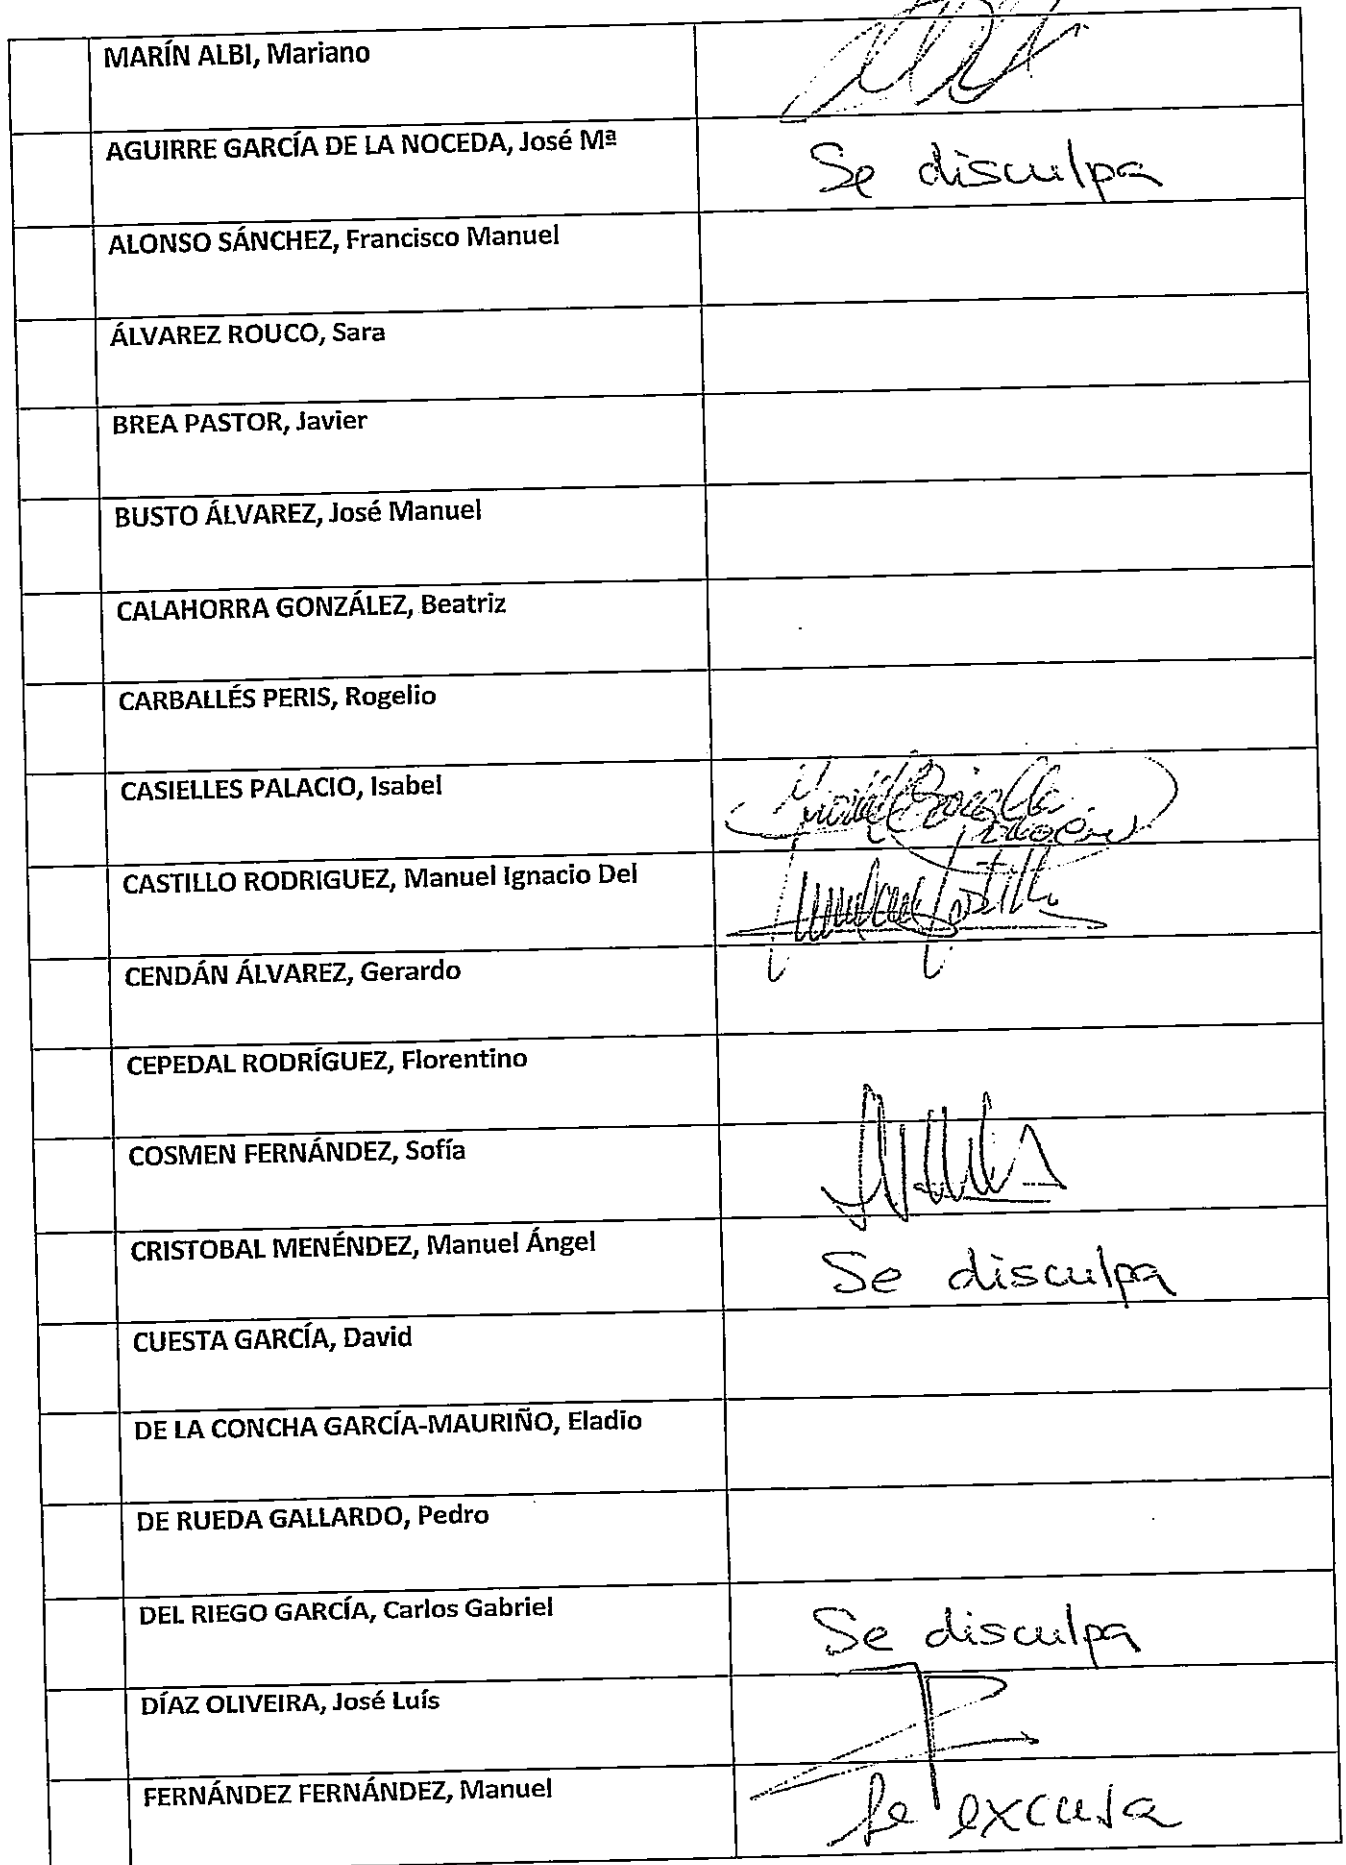 MARÍN ALBI, Mariano
AGUIRRE GARCÍA DE LA NOCEDA, José Mª
Se disculpa
ALONSO SÁNCHEZ, Francisco Manuel
ÁLVAREZ ROUCO, Sara
BREA PASTOR, Javier
BUSTO ÁLVAREZ, José Manuel
CALAHORRA GONZÁLEZ, Beatriz
CARBALLÉS PERIS, Rogelio
CASIELLES PALACIO, Isabel
CASTILLO RODRIGUEZ, Manuel Ignacio Del
CENDÁN ÁLVAREZ, Gerardo
CEPEDAL RODRÍGUEZ, Florentino
COSMEN FERNÁNDEZ, Sofía
CRISTOBAL MENÉNDEZ, Manuel Ángel
Se disculpa
CUESTA GARCÍA, David
DE LA CONCHA GARCÍA-MAURIÑO, Eladio
DE RUEDA GALLARDO, Pedro
DEL RIEGO GARCÍA, Carlos Gabriel
Se disculpa
DÍAZ OLIVEIRA, José Luís
FERNÁNDEZ FERNÁNDEZ, Manuel
Se excusa